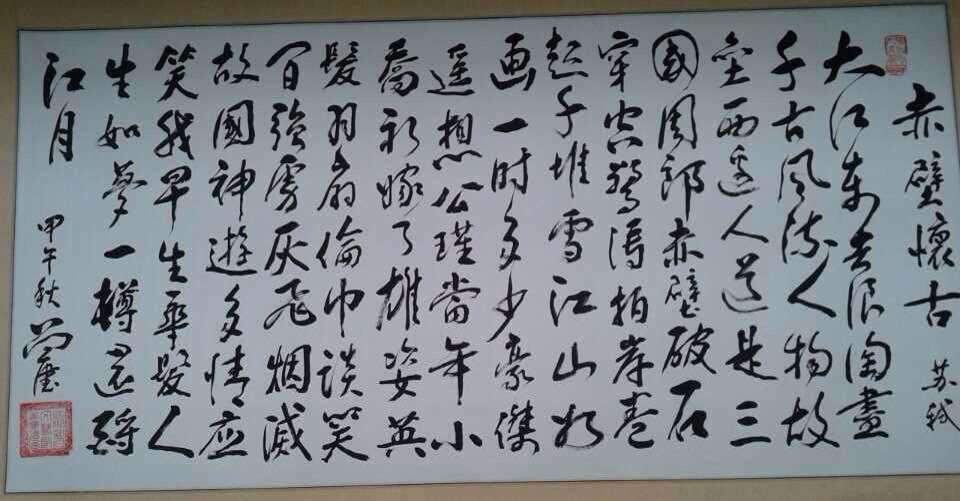 赤壁懷古 苏轼
大江東去浪淘盡
千古風流人物故
壘西邊人道是三
國周郎赤壁破石
穿空驚濤拍岸卷
起千堆雪江山如
画一时多少豪傑
遥想公瑾當年小
喬初嫁了雄姿英
髮羽扇倫巾談笑
间强虏灰飛烟滅
故國神遊多情應
笑我早生華髮人
生如夢一樽還酹
江月
甲午秋